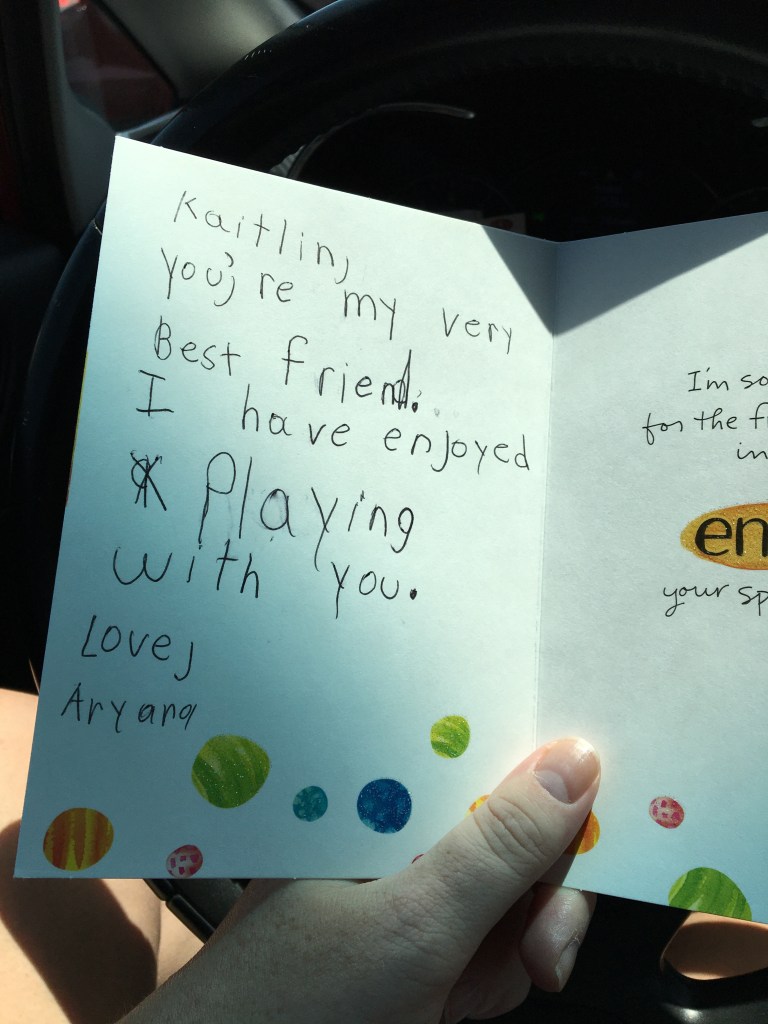 Kaitlin,
you're my very
Best friend.
I have enjoyed
Playing
with you.
Love,
Aryana
I'm so
for the
in
en
your